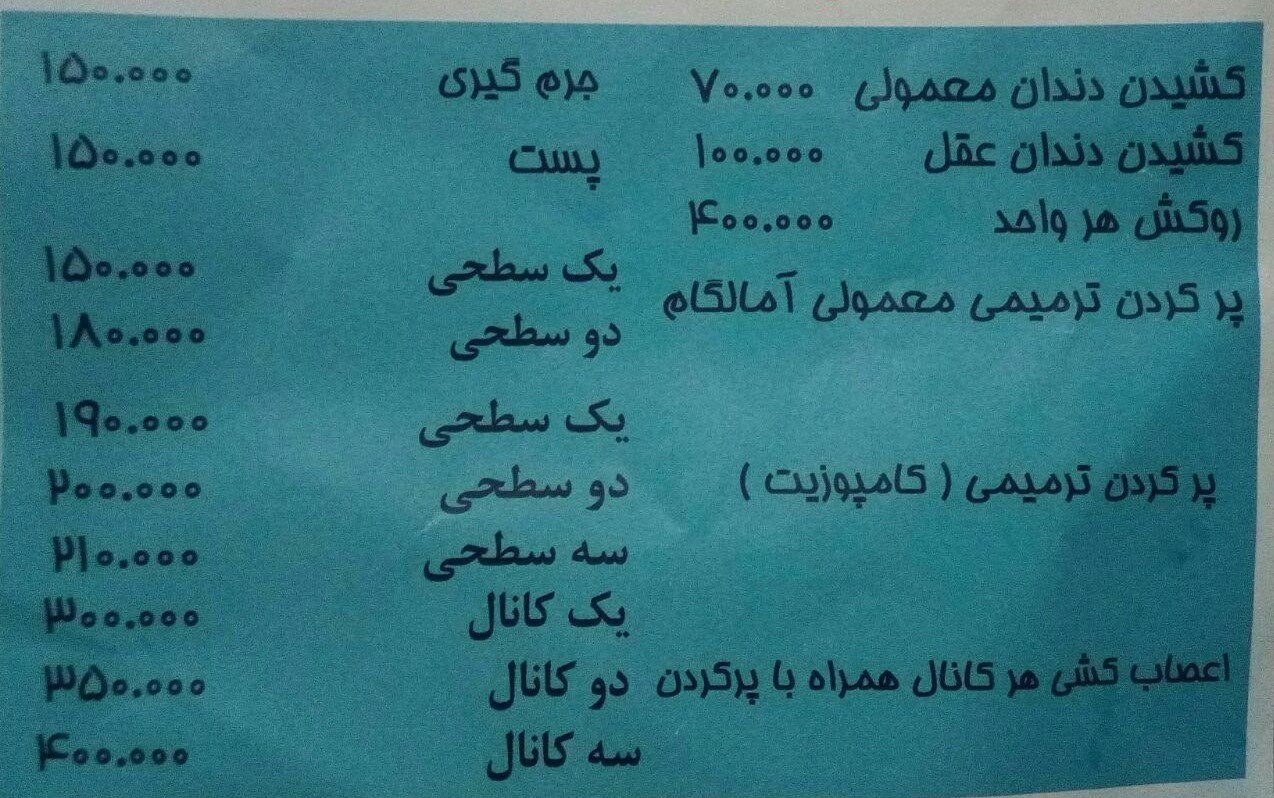 کشیدن دندان معمولی ۷۰.۰۰۰ جرم گیری ۱۵۰.۰۰۰
کشیدن دندان عقل ۱۰۰.۰۰۰ پست ۱۵۰.۰۰۰
روکش هر واحد ۴۰۰.۰۰۰
پر کردن ترمیمی معمولی آمالگام یک سطحی ۱۵۰.۰۰۰
دو سطحی ۱۸۰.۰۰۰
یک سطحی ۱۹۰.۰۰۰
پر کردن ترمیمی ( کامپوزیت ) دو سطحی ۲۰۰.۰۰۰
سه سطحی ۲۱۰.۰۰۰
یک کانال ۳۰۰.۰۰۰
اعصاب کشی هر کانال همراه با پرکردن دو کانال ۳۵۰.۰۰۰
سه کانال ۴۰۰.۰۰۰